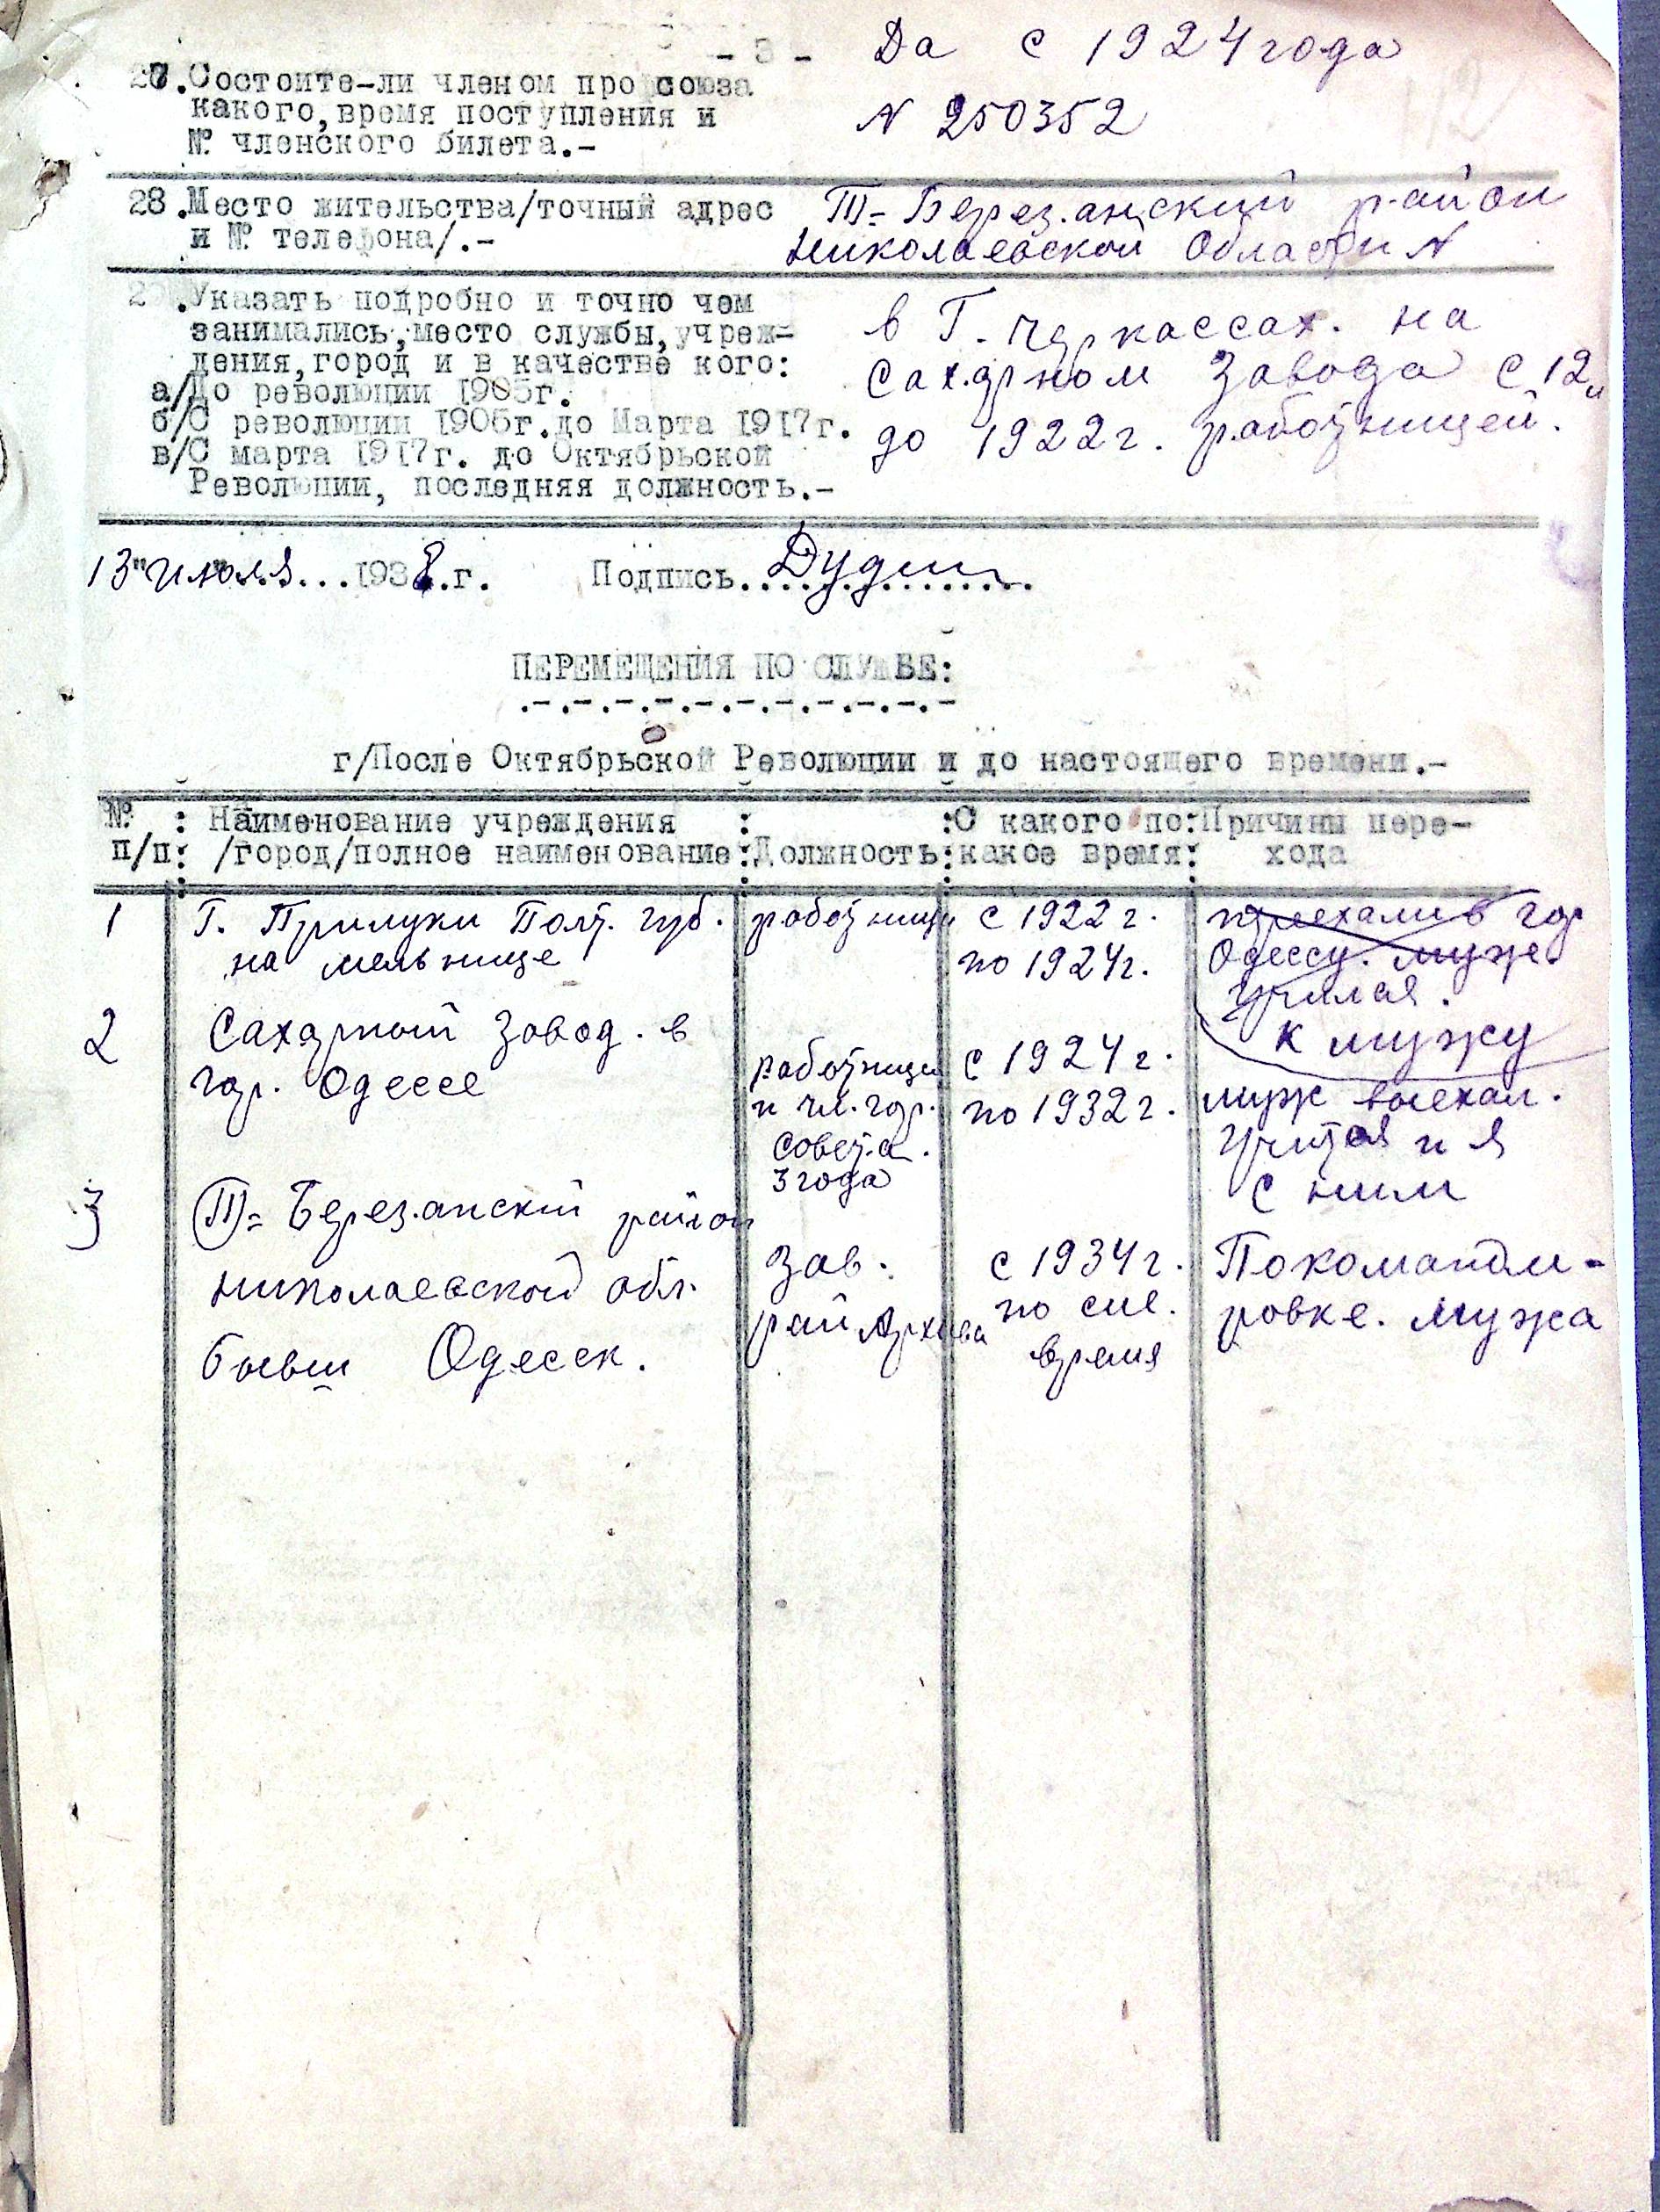 - 5 - Да с 1924 года
27. Состоите-ли членом профсоюза
какого, время поступления и N 250352
№ членского билета.-
28. Место жительства/точный адрес Т)= Берез.анский район
и № телефона/.- Николаевской Области N
2 . Указать подробно и точно чем
занимались, место службы, учреж-
дения, город и в качестве кого:
а/До революции 1905г.
б/С революции 1905г. до Марта 1917г.
в/С марта 1917г. до Октябрьской
Революции, последняя должность.-
в Г. Черкассах. на
Сахарном Завода с 12
до 1922г. работницей.
13 "июля... 1938.г. Подпись....
ПЕРЕМЕЩЕНИЯ ПО СЛУЖБЕ:
г/После Октябрьской Революции и до настоящего времени.-
№ : Наименование учреждения : :С какого по:Причины пере-
п/п: /город/полное наименование:Должность:какое время: хода
1 Г. Прилуки Полт. губ. работница с 1922 г. переехали в гор
на мельнице по 1924г. Одессу. муже
учился.
к мужу
2 Сахарный завод. в работница с 1924 г. муж выехал.
гор. Одессе и чл. гор. по 1932 г. учится и я
совет.а. с ним
3 года
3 Т)= Березанский район Зав. с 1934 г. По команди-
николаевской обл. рай Архива по сие. ровке. мужа
бывш Одесск. время